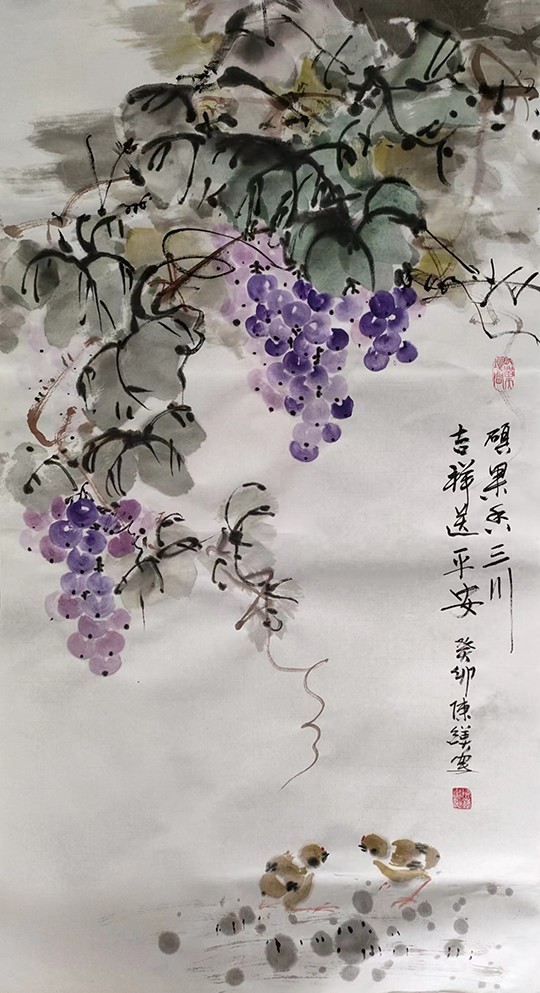 硕果香三川
吉祥送平安
癸卯陈